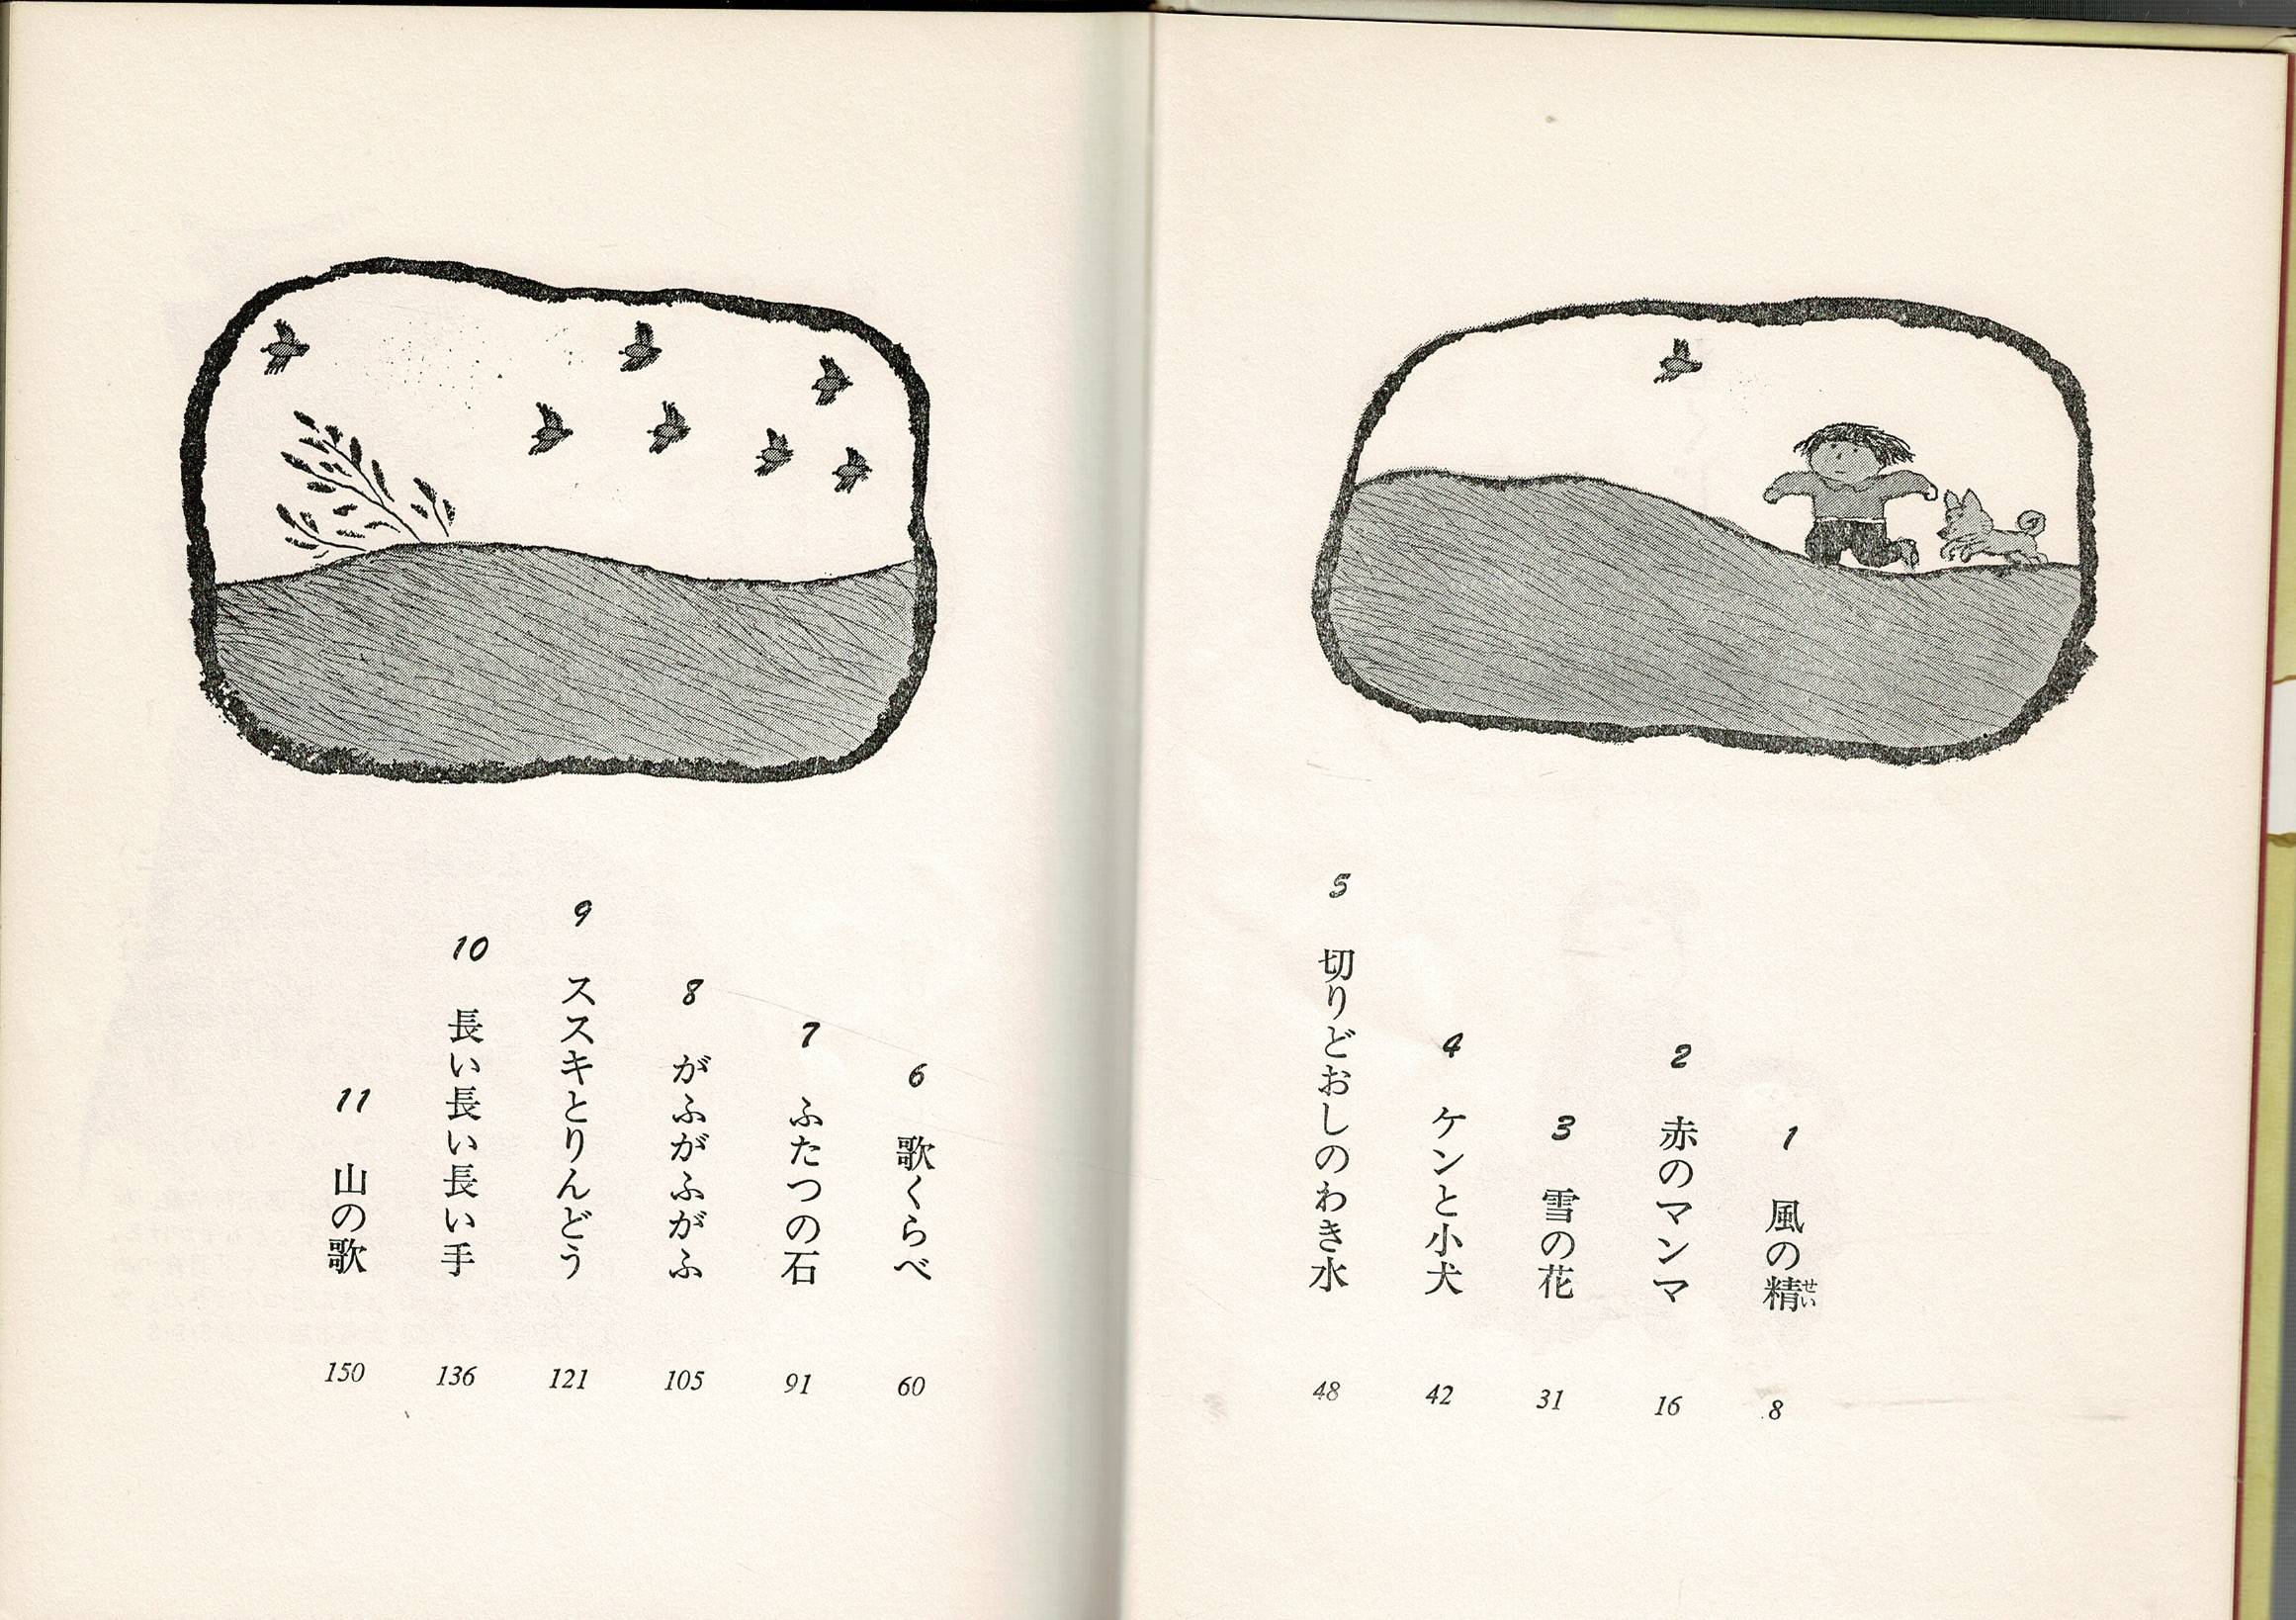 1 風の精 せい 8
2 赤のマンマ 16
3 雪の花 31
4 ケンと小犬 42
5 切りどおしのわき水 48
6 歌くらべ 60
7 ふたつの石 91
8 がふがふがふ 105
9 ススキとりんどう 121
10 長い長い長い手 136
11 山の歌 150